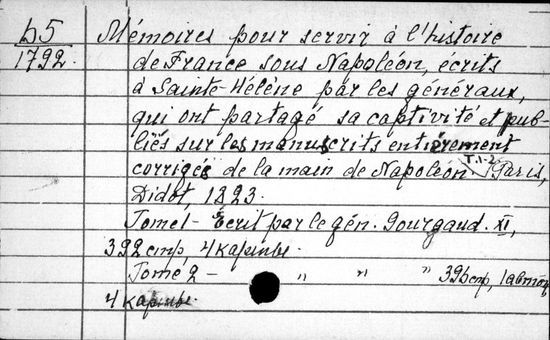 b5
1792.
Mémoires pour servir à l'histoire
de France sous Napoléon, ecrits
à Sainte-Hélène par les généraux,
qui ont partagé sa captivité et pub-
liés sur les manuscrits entièrement
corrigés de la main de Napoléon. T.1-2 Paris,
Didot, 1823.
Tome 1 - Ecrit par le gén. Gourgaud. XI,
392 стр, 4 карты.
Tome 2 - " " " 395 стр,
4 карты.